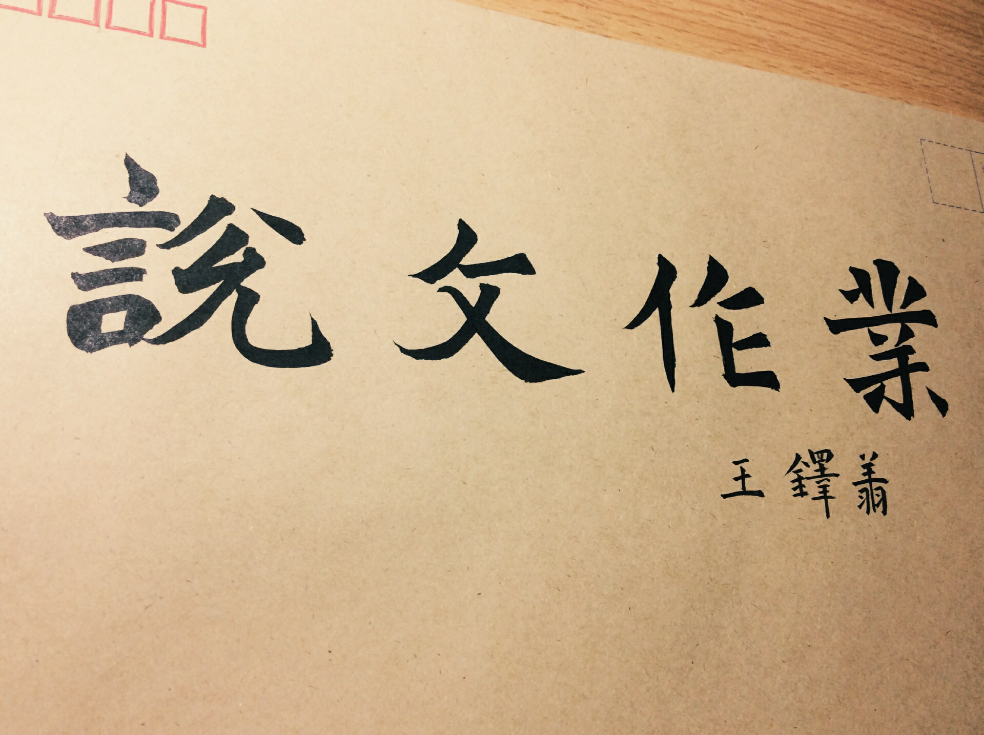 說文作業
王鐸